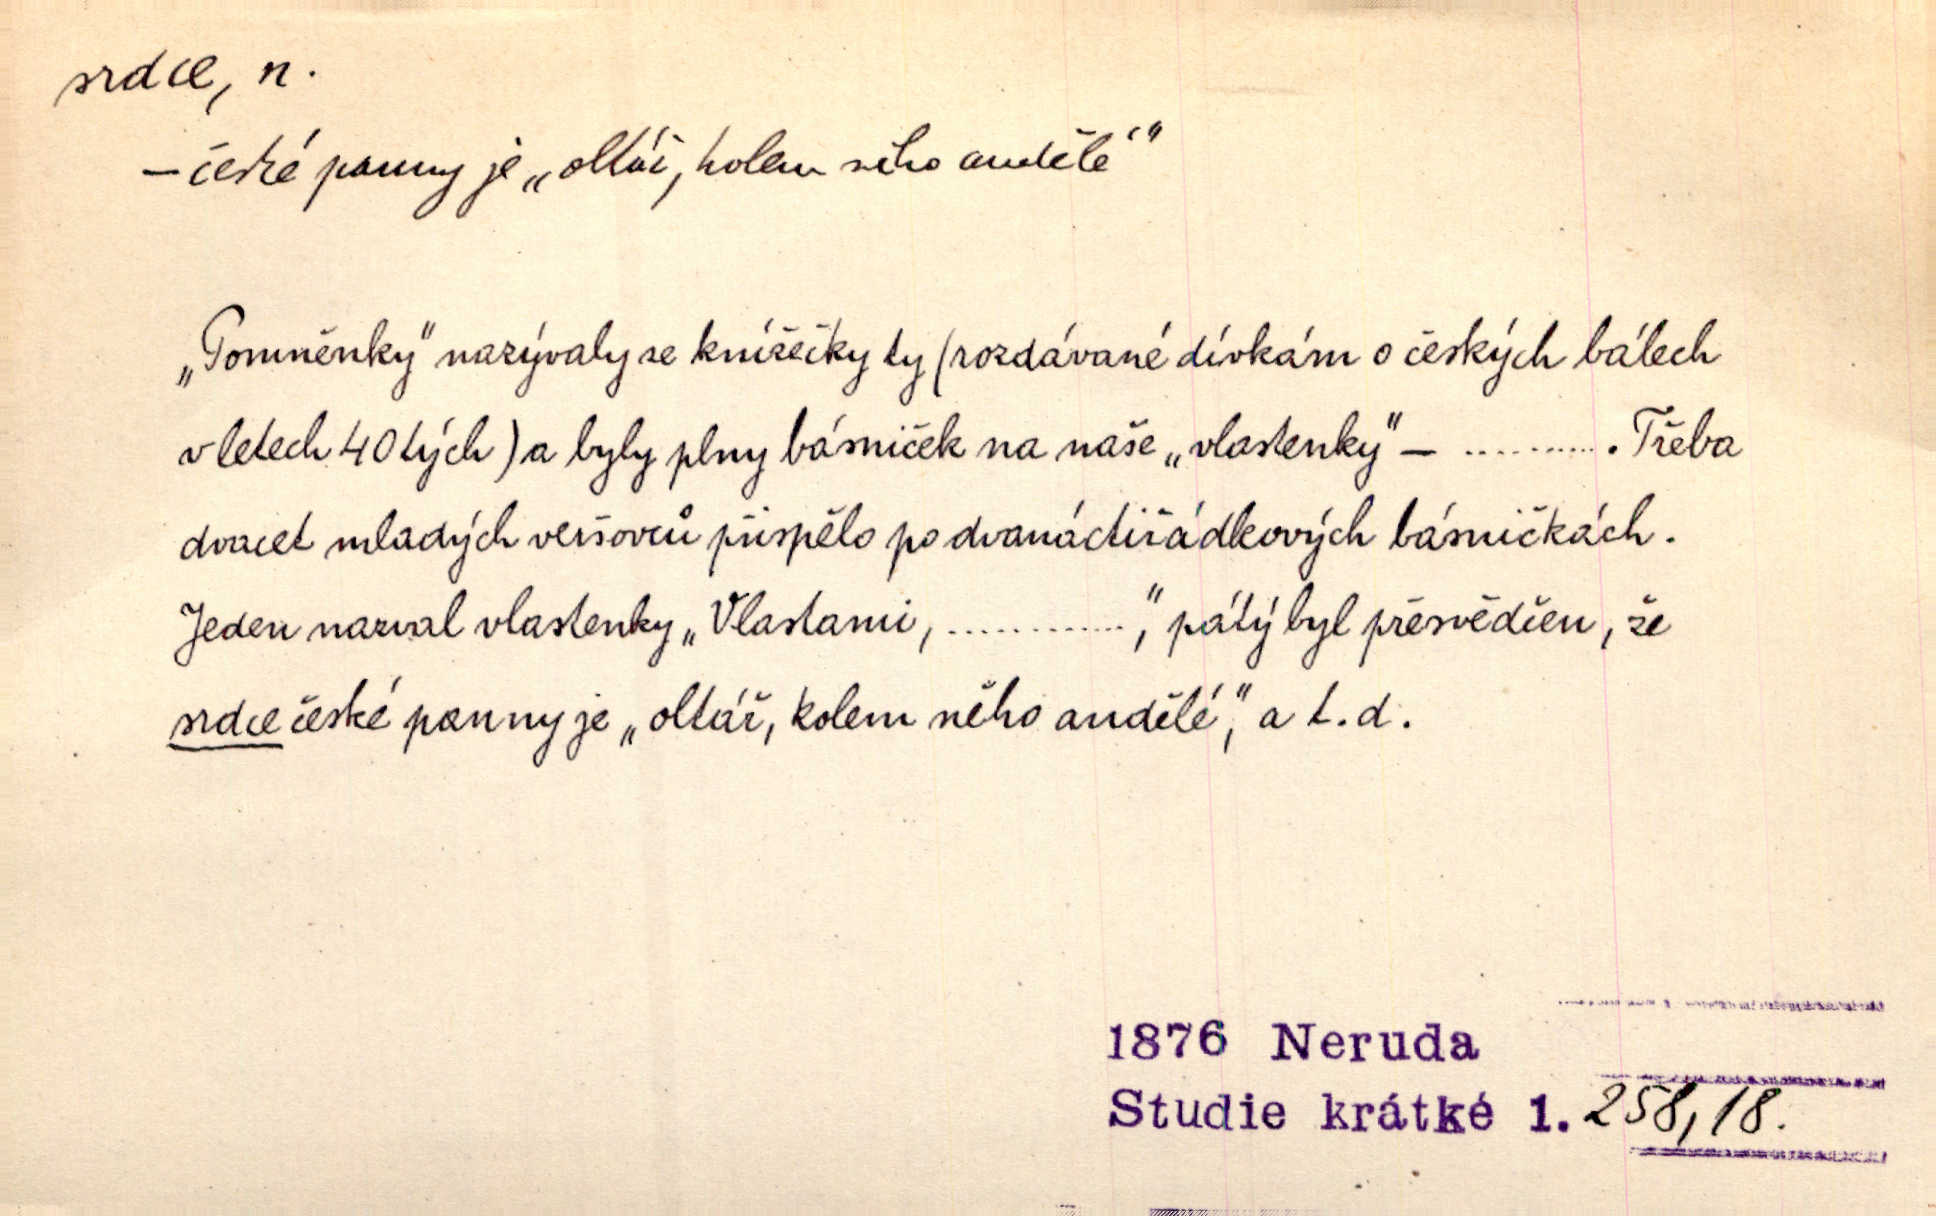 srdce, n.
– české panny je „oltář, kolem něho andělé“
„Pomněnky“ nazývaly se knížečky ty (rozdávané dívkám o českých bálech
v letech 40tých) a byly plny básniček na naše „vlastenky“ – ........... Třeba
dvacet mladých veršovců přispělo po dvanáctiřádkových básničkách.
Jeden nazval vlastenky „Vlastami, .............“, pátý byl přesvědčen, že
srdce české panny je „oltář, kolem něho andělé“, a t. d.
1876 Neruda
Studie krátké 1. 258, 18.